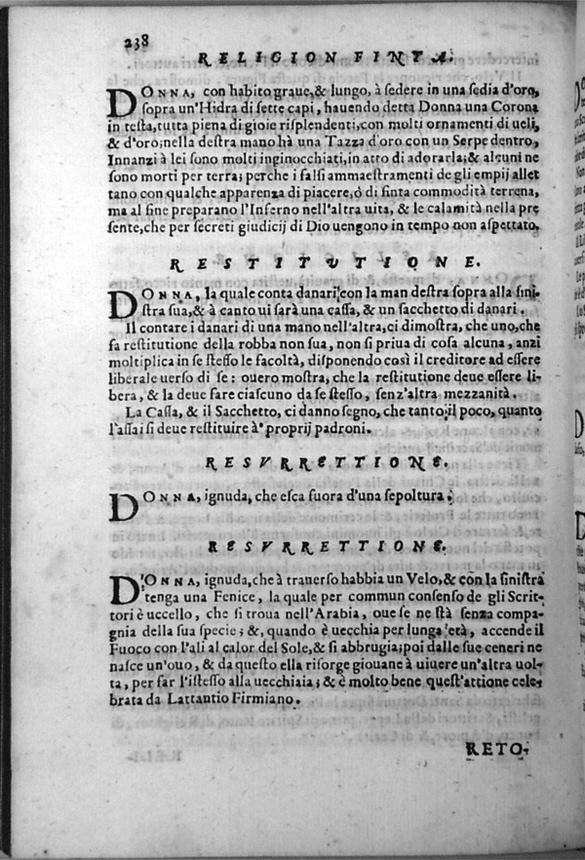 238
RELIGION FINTA.
DONNA, con habito graue,& lungo, à sedere in una sedia d'oro,
sopra un'Hidra di sette capi, hauendo detta Donna una Corona
in testa,tutta piena di gioie risplendenti,con molti ornamenti di ueli,
& d'oro;nella destra mano hà una Tazza d'oro con un Serpe dentro,
Innanzi à lei sono molti inginocchiati,in atto di adorarla;& alcuni ne
sono morti per terra; perche i falsi ammaestramenti de gli empij allet
tano con qualche apparenza di piacere,ò di finta commodità terrena,
ma al fine preparano l'Inferno nell'altra uita, & le calamità nella pre
sente,che per secreti giudicij di Dio uengono in tempo non aspettato.
RESTITUTIONE.
DONNA, la quale conta danari,con la man destra sopra alla sini-
stra sua,& à canto ui sarà una cassa, & un sacchetto di danari.
Il contare i danari di una mano nell'altra,ci dimostra, che uno,che
fa restitutione della robba non sua, non si priua di cosa alcuna, anzi
moltiplica in se stesso le facoltà, disponendo così il creditore ad essere
liberale uerso di se: ouero mostra, che la restitutione deue essere li-
bera, & la deue fare ciascuno da se stesso, senz'altra mezzanità.
La Cassa, & il Sacchetto, ci danno segno, che tanto;il poco, quanto
l'assai si deue restituire à' proprij padroni.
RESVRRETTIONE.
DONNA, ignuda, che esca fuora d'una sepoltura.
RESVRRETTIONE.
DONNA, ignuda,che à trauerso habbia un Velo,& con la sinistra
tenga una Fenice, la quale per commun consenso de gli Scrit-
tori è uccello, che si troua nell'Arabia, oue se ne stà senza compa-
gnia della sua specie; &, quando è uecchia per lunga età, accende il
Fuoco con l'ali al calor del Sole,& si abbrugia;poi dalle sue ceneri ne
nasce un'ouo, & da questo ella risorge giouane à uiuere un'altra uol-
ta, per far l'istesso alla uecchiaia; & è molto bene quest'attione cele-
brata da Lattantio Firmiano.
RETO-